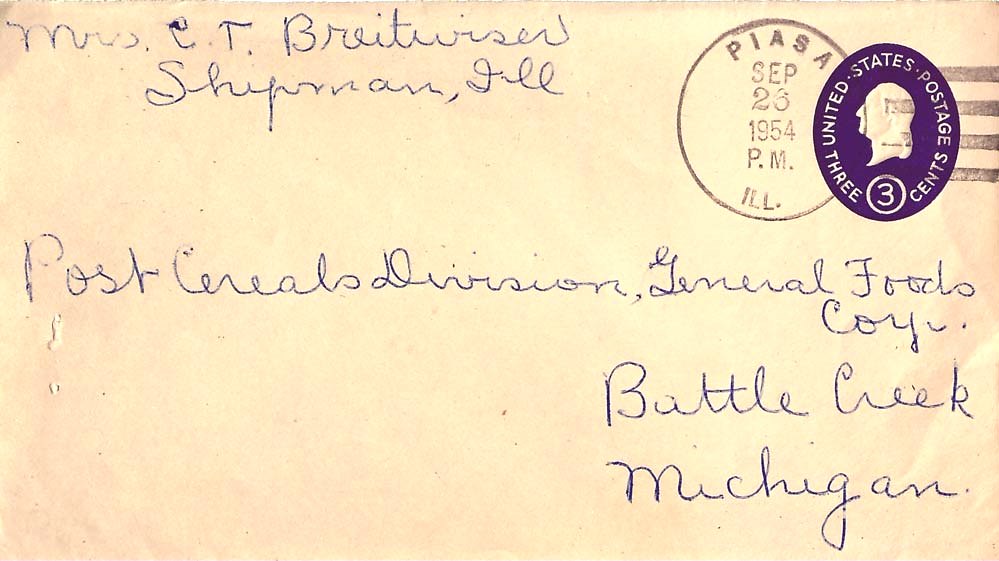 Mrs. C. T. Breitwiser
Shipman, Ill
PIASA
SEP
26
1954
P.M.
ILL.
THREE UNITED·STATES·POSTAGE CENTS
3
Post Cereals Division, General Foods
Corp.
Battle Creek
Michigan.